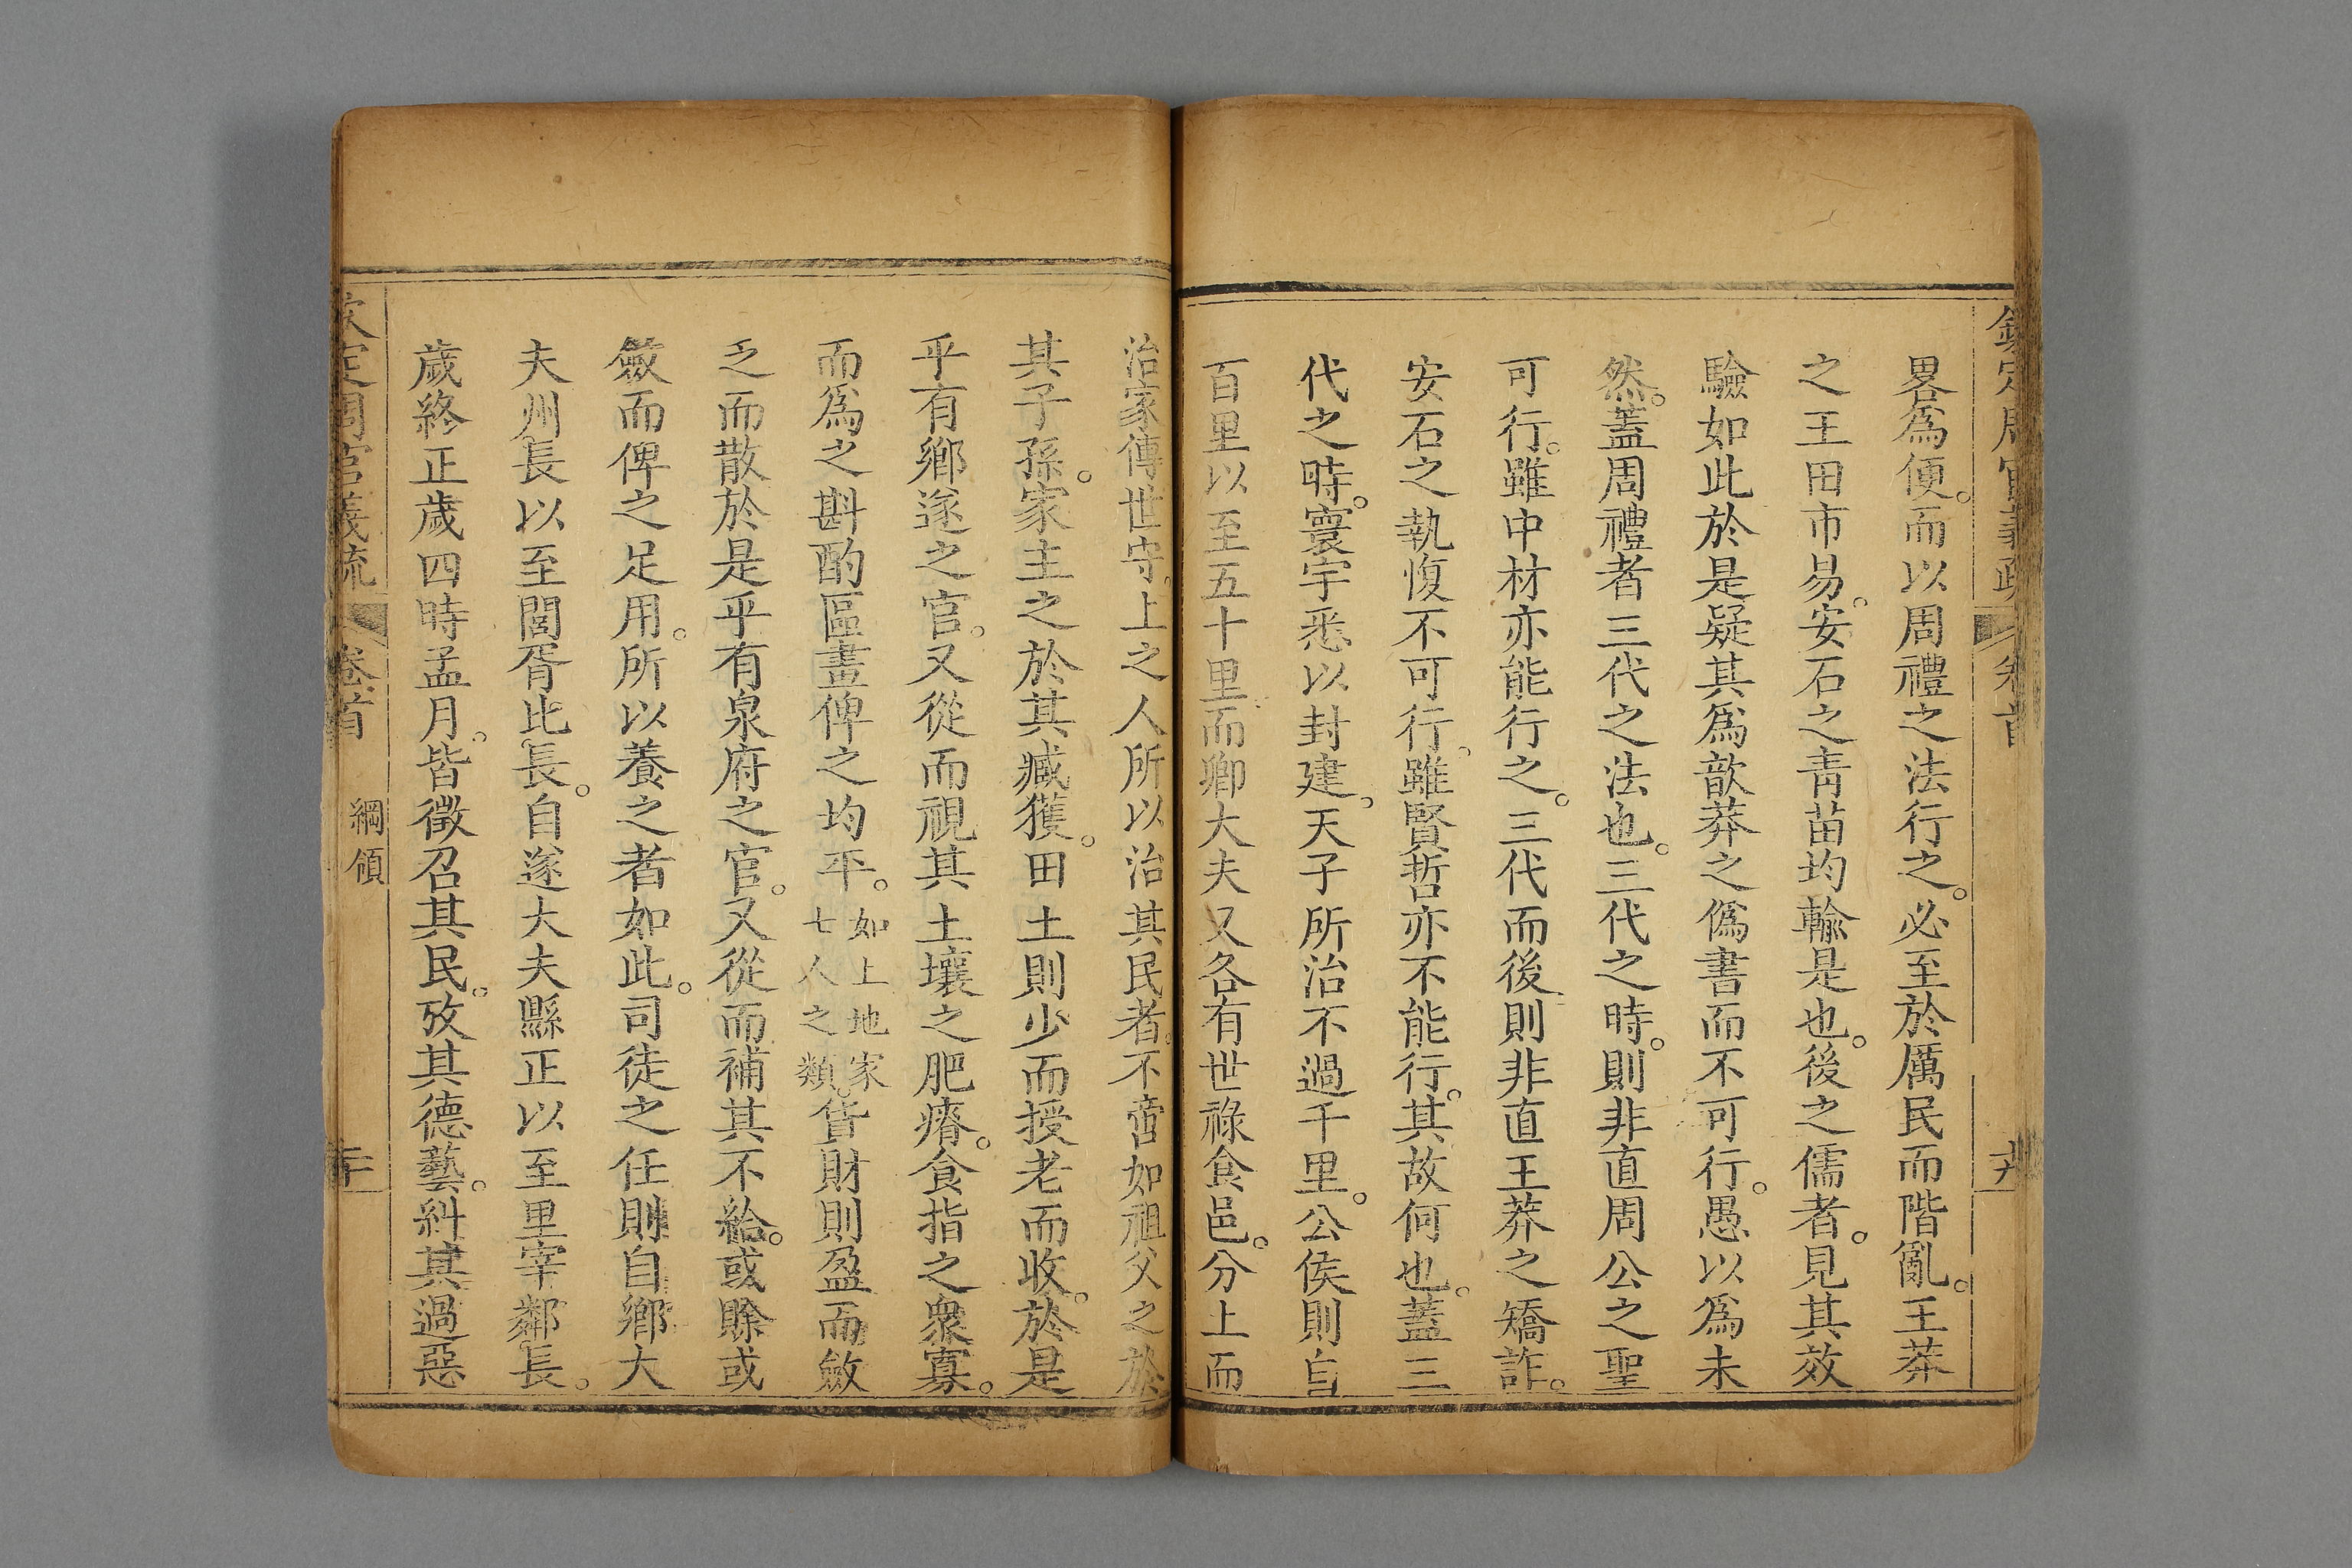 欽定周官義疏 卷首
畧爲便。而以周禮之法行之。必至於厲民而階亂。王莽
之王田市易。安石之青苗均輸是也。後之儒者。見其效
驗如此於是疑其爲歆莽之僞書而不可行。愚以爲未
然。蓋周禮者三代之法也。三代之時。則非直周公之聖
可行。雖中材亦能行之。三代而後則非直王莽之矯詐。
安石之執愎不可行。雖賢哲亦不能行。其故何也。蓋三
代之時。寰宇悉以封建。天子所治不過千里。公侯則自
百里以至五十里而卿大夫又各有世祿食邑。分土而
治家傳世守。上之人所以治其民者。不啻如祖父之於
其子孫。家主之於其臧獲。田土則少而授老而收。於是
乎有鄉遂之官。又從而視其土壤之肥瘠。食指之衆寡。
而爲之斟酌區畫俾之均平。如上地家七人之類。貨財則盈而斂
之而散於是乎有泉府之官。又從而補其不給。或賒或
斂而俾之足用。所以養之者如此。司徒之任則自鄉大
夫州長以至閭胥比長。自遂大夫縣正以至里宰鄰長。
歲終正歲四時孟月。皆徵召其民。攷其德藝。糾其過惡
欽定周官義疏 卷首 綱領 二十